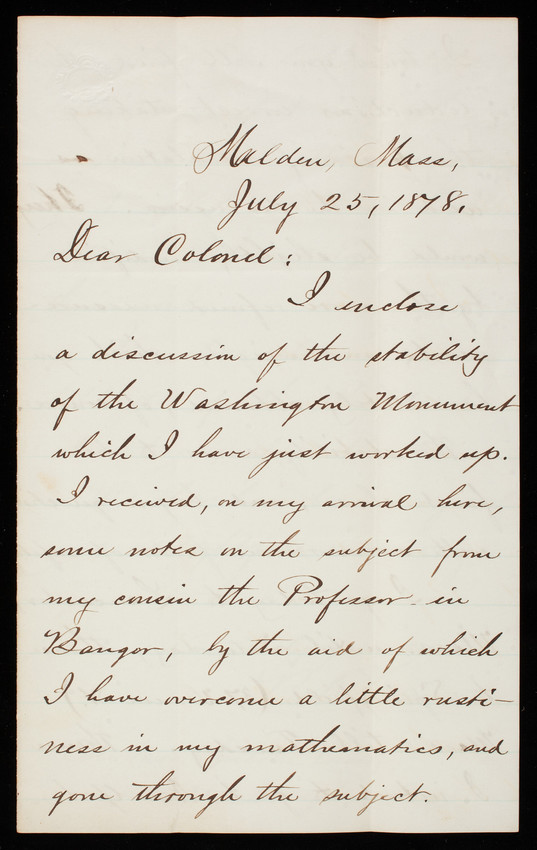 Malden, Mass,
July 25, 1878.
Dear Colonel:
I enclose
a discussion of the stability
of the Washington Monument
which I have just worked up.
I received, on my arrival here,
some notes on the subject from
my cousin the Professor in
Bangor, by the aid of which
I have overcome a little rusti-
ness in my mathematics, and
gone through the subject.